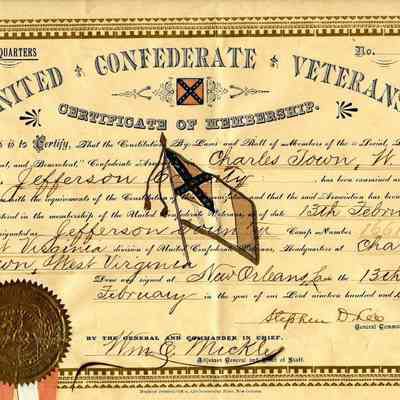 QUARTERS
No.
UNITED CONFEDERATE VETERANS
CERTIFICATE OF MEMBERSHIP.
is to Certify, That the Constitution, By-Laws and Roll of Members of the "Social,
and Benevolent," Confederate Charles Town, W.
Jefferson Co has been examined
with the requirements of the Constitution and that the said Association has been
in the membership of the United Confederate Veterans, as of date 13th Febru
as Jefferson County Camp Number
st Virginia division of United Confederate Veterans, Headquarters at Cha
own, West Virginia
Done and signed at New Orleans, La the 13th
February in the year of our Lord nineteen hundred and
Stephen D. Lee
General Comman
BY THE GENERAL AND COMMANDER IN CHIEF.
Wm E. Mickle
Adjutant General and Chief of Staff.